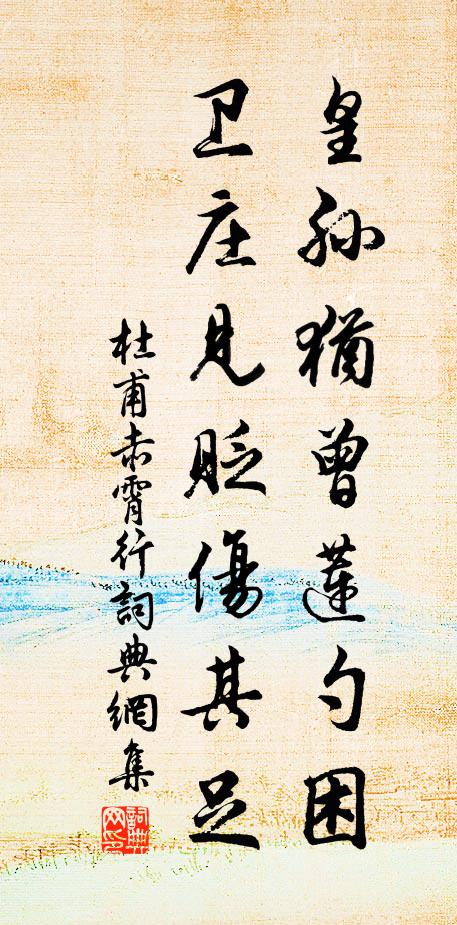 皇孙犹曾莲勺困
卫庄见贬傷其足
杜甫赤霄行詞典網集
詞典网印